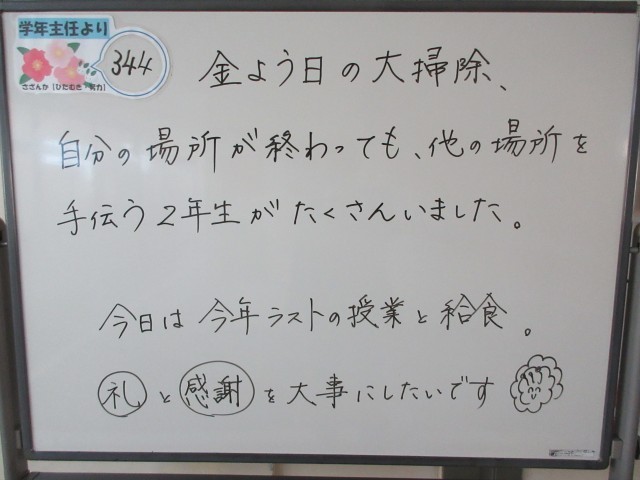 学年主任より
344
ささんか【ひたむき・努力】
金よう日の大掃除、
自分の場所が終わっても、他の場所を
手伝う2年生がたくさんいました。
今日は今年ラストの授業と給食。
礼と感謝を大事にしたいです